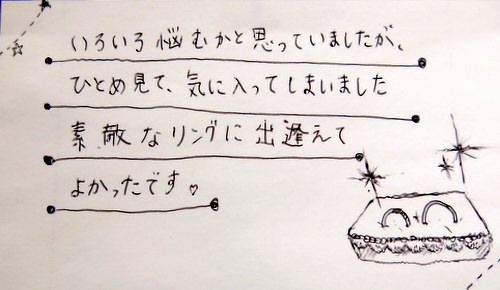 いろいろ悩むかと思っていましたが、
ひとめ見て、気に入ってしまいました
素敵なリングに出逢えて
よかったです♡